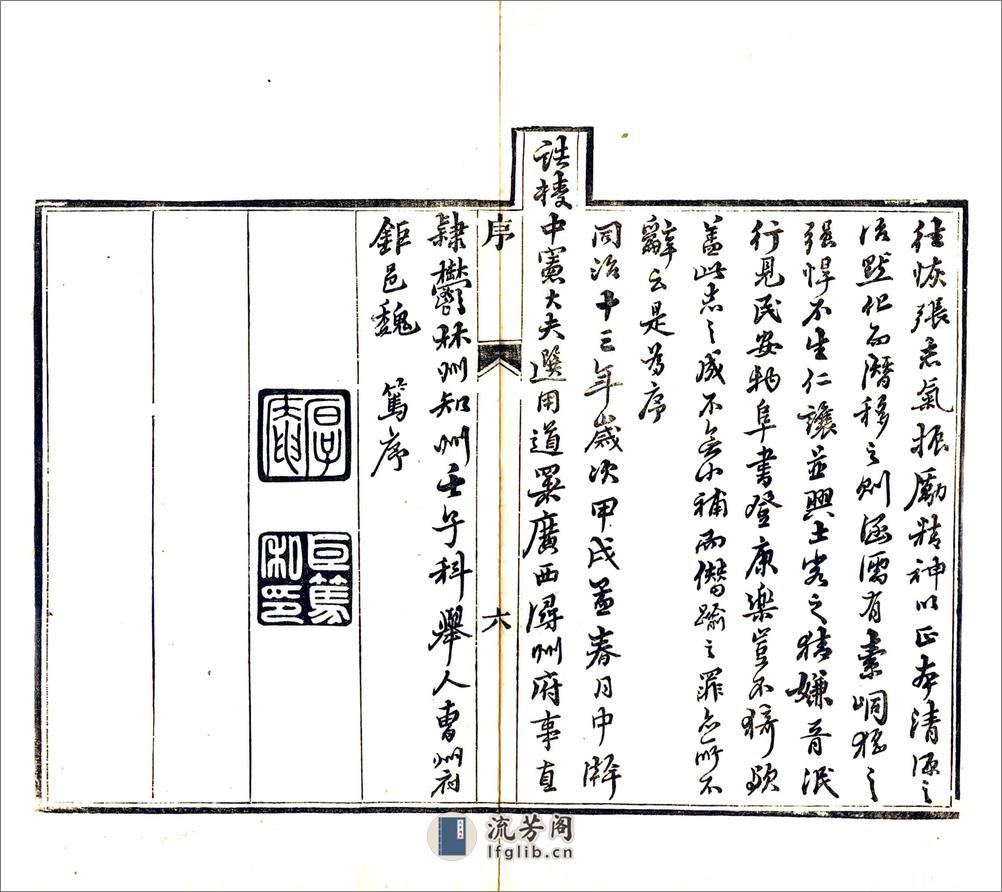 往恢張志氣振勵精神以正本清源之
治默化而潛移之則涵濡有素峒猺之
強悍不生仁讓並興土客之猜嫌音泯
行見民安物阜書登康樂豈不猗歟
蓋此志之成不無小補而僭踰之罪亦所不
辭云是為序
同治十三年歲次甲戌孟春月中澣
誥授中憲大夫選用道署廣西潯州府事直
序
六
隸鬱林州知州壬子科舉人曹州府
鉅邑魏 篤序
臣篤
私印
流芳阁
lfglib.cn